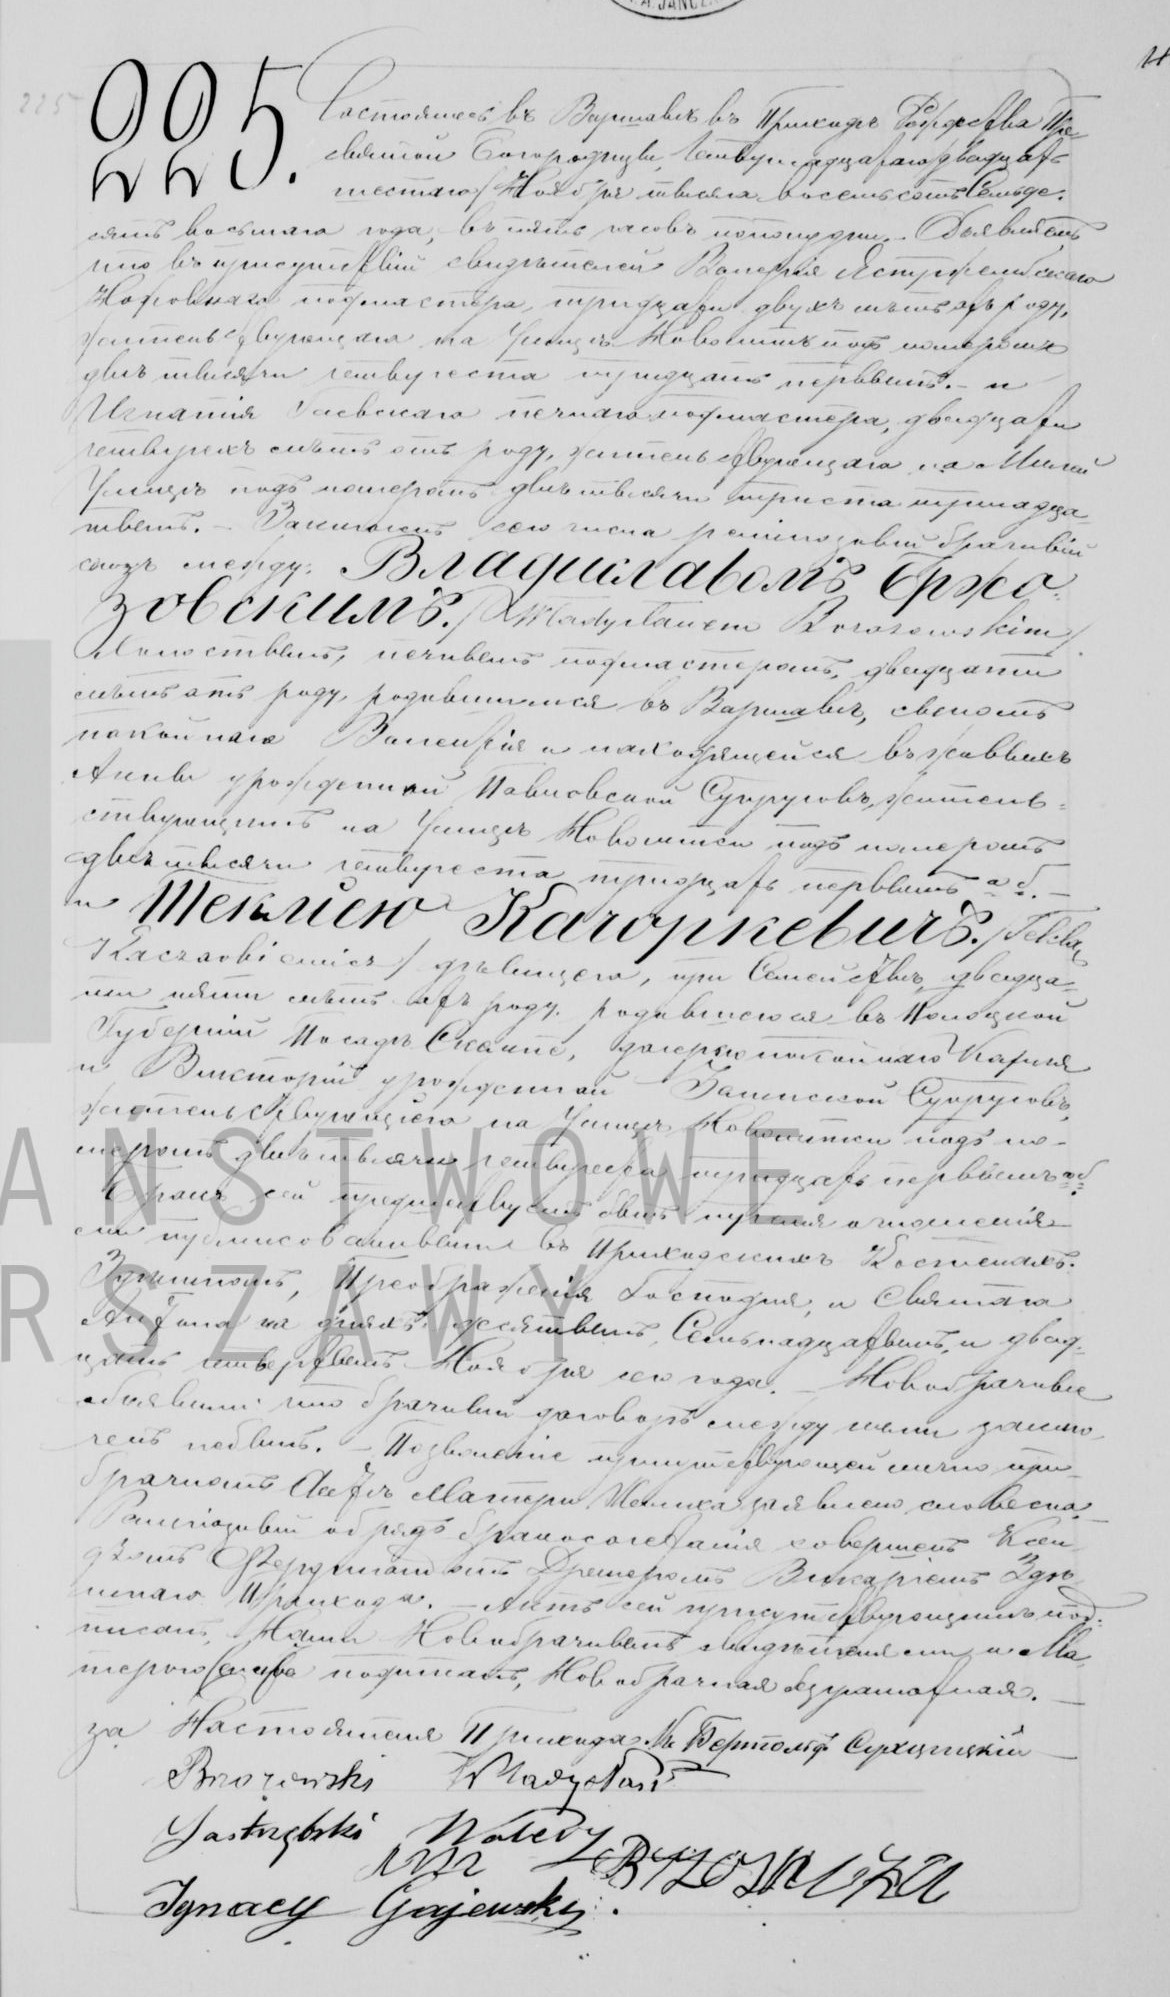 A. JANCZ
225
225.
Состоялось въ Варшавѣ въ Приходѣ Рождества Пре-
святой Богородицы, четырнадцатаго/двадцать
шестаго/ Ноября тысяча восемьсотъ семьде-
сятъ восьмаго года, въ пять часовъ пополудни. – Объявляемъ
что въ присутствіи свидѣтелей Валерія Ястржембскаго
подмастера, тридцати двухъ лѣтъ отъ роду,
жительствующаго на Улицѣ Новолипкѣ подъ номеромъ
двѣ тысячи четыреста тридцать первымъ. – и
Игнатія Гаевскаго печнаго подмастера, двадцати
четырехъ лѣтъ отъ роду, жительствующаго на Милой
Улицѣ подъ номеромъ двѣ тысячи триста тринадца-
тымъ. – Заключенъ сего числа религіозный брачный
союзъ между: Владиславомъ Бржо-
зовскимъ. /Władysławem Brzozowskim/
Холостымъ, печнымъ подмастеромъ, двадцати
лѣтъ отъ роду, родившимся въ Варшавѣ, сыномъ
покойнаго и находящейся въ живыхъ
Анны урожденной Павловской Супруговъ, житель-
ствующимъ на Улицѣ Новолипки подъ номеромъ
двѣ тысячи четыреста тридцать первымъ а б. –
и Теклею Качоркевичъ. /Teklą
Kaczorkiewicz/ дѣвицею, при Семействѣ, двадца-
ти пяти лѣтъ отъ роду, родившеюся въ Плоцкой
Губерніи Посадѣ Скемпе, дочерью покойнаго Карла
и Викторіи урожденной Супруговъ,
жительствующею на Улицѣ Новолипки подъ но-
меромъ двѣ тысячи четыреста тридцать первымъ а б.
Браку сему предшествовали три оглашенія
публикованныя въ Приходскихъ Костелахъ:
Здѣшнемъ, Преображенія Господня, и Святаго
Антонія въ дняхъ: десятымъ, Семьнадцатымъ, и двад-
цать четвертымъ Ноября сего года. – Новобрачные
объявили что брачный договоръ между ними заклю-
ченъ небылъ. – Позволеніе присутствующей лично при
брачномъ Актѣ Матери Жениха изъявлено словесно. –
Религіозный обрядъ бракосочетанія совершенъ Ксен-
дзомъ Фердинандомъ Викаріемъ Здѣ-
шняго Прихода. – Актъ сей присутствующимъ про-
читанъ, Нами Новобрачнымъ свидѣтелями и Ма-
терью подписанъ, Новобрачная безграмотная. –
за Настоятеля Прихода Кс. Бертольдъ
Brzozowski Władysław
Jastrzębski Walery
BRZOZOWSKA
Ignacy Gajewski.
AŃSTWOWE
RSZAWY